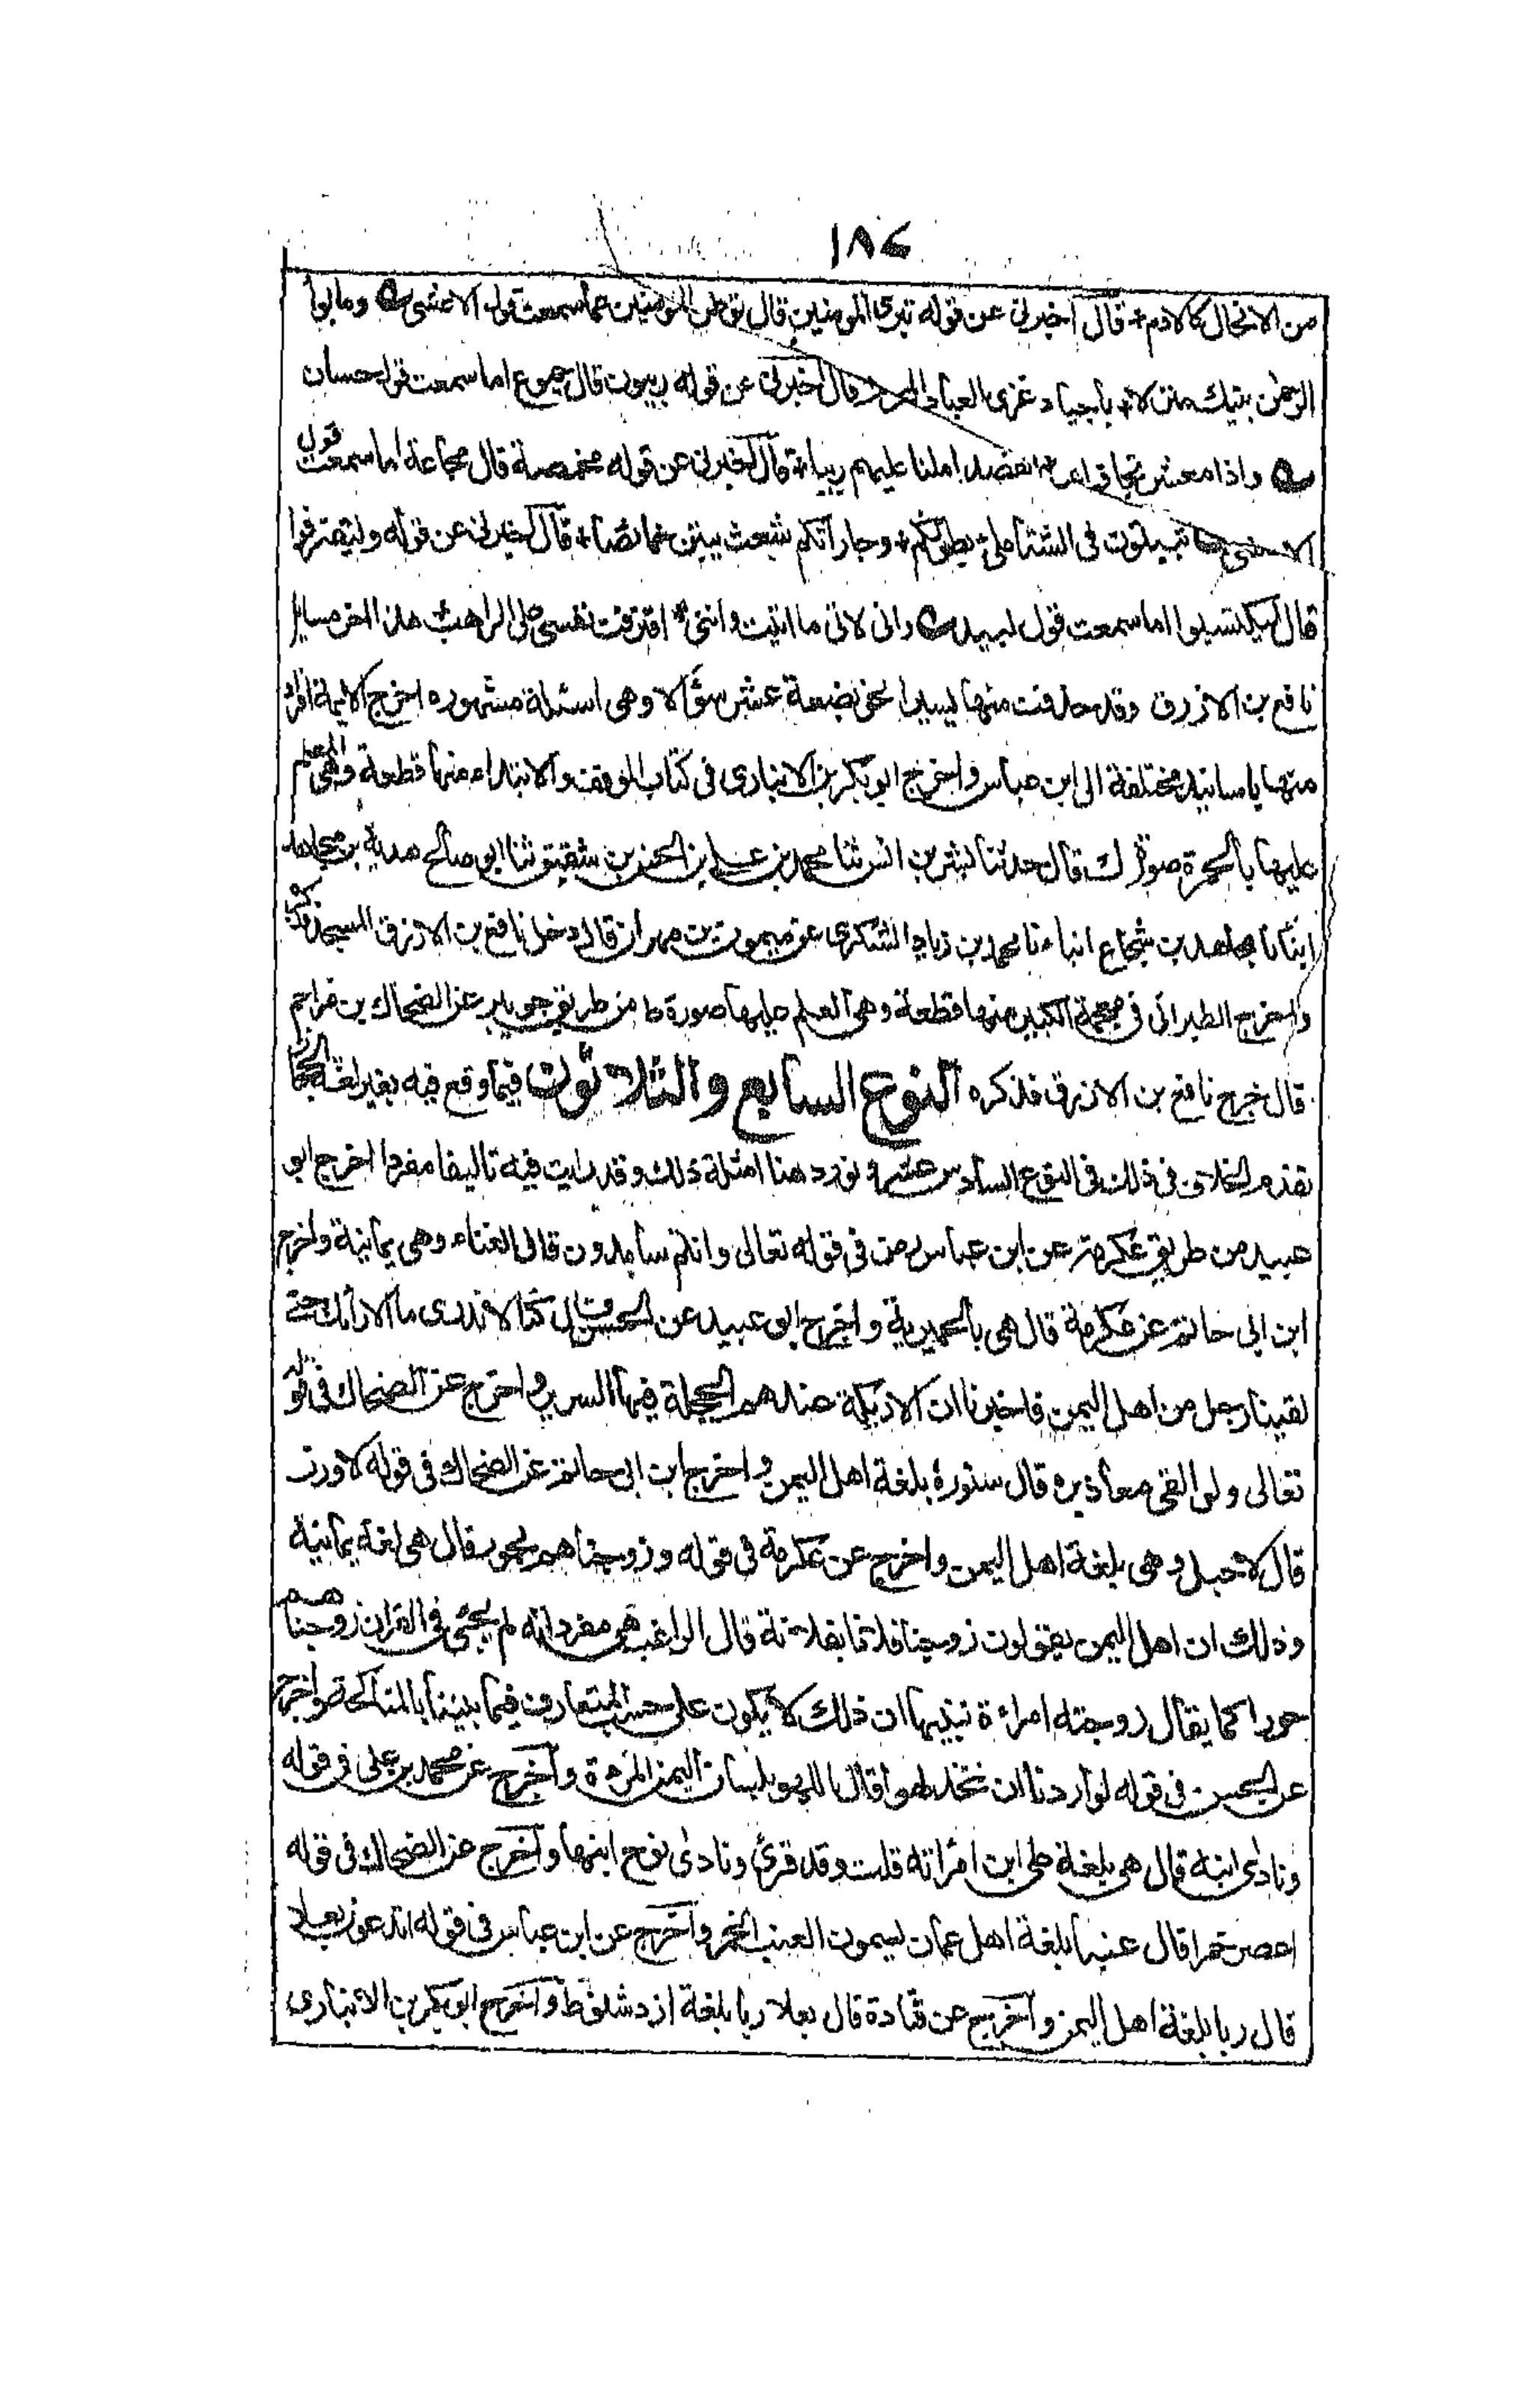 ١٨٤
من الانحال كالادم + قال اخبرنى عن قوله تبوى المومنين قال توطن المومنين اما سمعت قول الاعشى وما بوا
الرحمن بيتك منزلا + باجياد غربى الفنا والمحرم قال اخبرنى عن قوله ربيون قال جموع اما سمعت قول حسان
واذا معشر تجافوا عن القصد املنا عليهم ربيا + قال اخبرنى عن قوله مخمصة قال مجاعة اما سمعت قول
الاعشى تبيتون فى الشتا ملئ بطونكم + وجاراتكم شعث يبتن خمائصا + قال اخبرنى عن قوله وليقترفوا
قال ليكتسبوا اما سمعت قول لبيد وانى لاتى ما اتيت واننى + اقترفت نفسى على الراهب هذا اخر مسايل
نافع بن الازرق وقد حذفت منها يسيرا نحو بضعة عشر سؤالا وهى اسئلة مشهوره اخرج الايمة افراد
منها باسانيد مختلفة الى ابن عباس واخرج ابو بكر بن الانبارى فى كتاب الوقف والابتداء منها قطعة وهى المعلم
عليها بالحمرة صورة ك قال حدثنا بشر بن انس ثنا محمد بن على بن الحسن بن شقيق ثنا ابو صالح هدية بن مجاهد
انبأنا مجاهد بن شجاع انباءنا محمد بن زياد الشكرى عن ميمون بن مهران قال دخل نافع بن الازرق المسجد فذكره
واخرج الطبرانى فى معجمه الكبير منها قطعة وهى العلم عليها صورة ط من طريق جويبر عن الضحاك بن مزاحم
قال خرج نافع بن الازرق فذكره النوع السابع والثلاثون فيما وقع فيه بغير لغة الحجاز
تقدم الخلاف فى ذلك فى النوع السادس عشر و نورد هنا امثلة ذلك وقد رايت فيه تاليفا مفردا اخرج ابو
عبيد من طريق عكرمة عن ابن عباس رض فى قوله تعالى وانتم سامدون قال الغناء وهى يمانية واخرج
ابن ابى حاتم عن عكرمة قال هى بالحميرية واخرج ابو عبيد عن الحسن قال كنا لا ندرى ما الارائك حتى
لقينا رجل من اهل اليمن فاخبرنا ان الاريكة عندهم الحجلة فيها السرير واخرج عن الضحاك فى قوله
تعالى ولو القى معاذيره قال ستوره بلغة اهل اليمن واخرج ابن ابى حاتم عن الضحاك فى قوله لاوزر
قال لا حبل وهى بلغة اهل اليمن واخرج عن عكرمة فى قوله وزوجناهم بحور قال هى لغة يمانية
وذلك ان اهل اليمن يقولون زوجنا فلانا بفلانة قال الراغب فى مفرداته لم يجئ فى القران زوجناهم
حورا كما يقال زوجته امراءة تنبيها ان ذلك لا يكون على حسب المتعارف فيما بيننا بالمناكحة واخرج
عن الحسن فى قوله لو اردنا ان نتخذ لهوا قال اللهو بلسان اليمن المرءة واخرج عن محمد بن على فى قوله
ونادى ابنه قال هى بلغة طى ابن امراته قلت وقد قرئ ونادى نوح ابنها واخرج عن الضحاك فى قوله
اعصر خمرا قال عنبا بلغة اهل عمان يسمون العنب الخمر واخرج عن ابن عباس فى قوله اتدعون بعلا
قال ربا بلغة اهل اليمن واخرج عن قتادة قال بعلا ربا بلغة ازد شنوة واخرج ابو بكر بن الانبارى